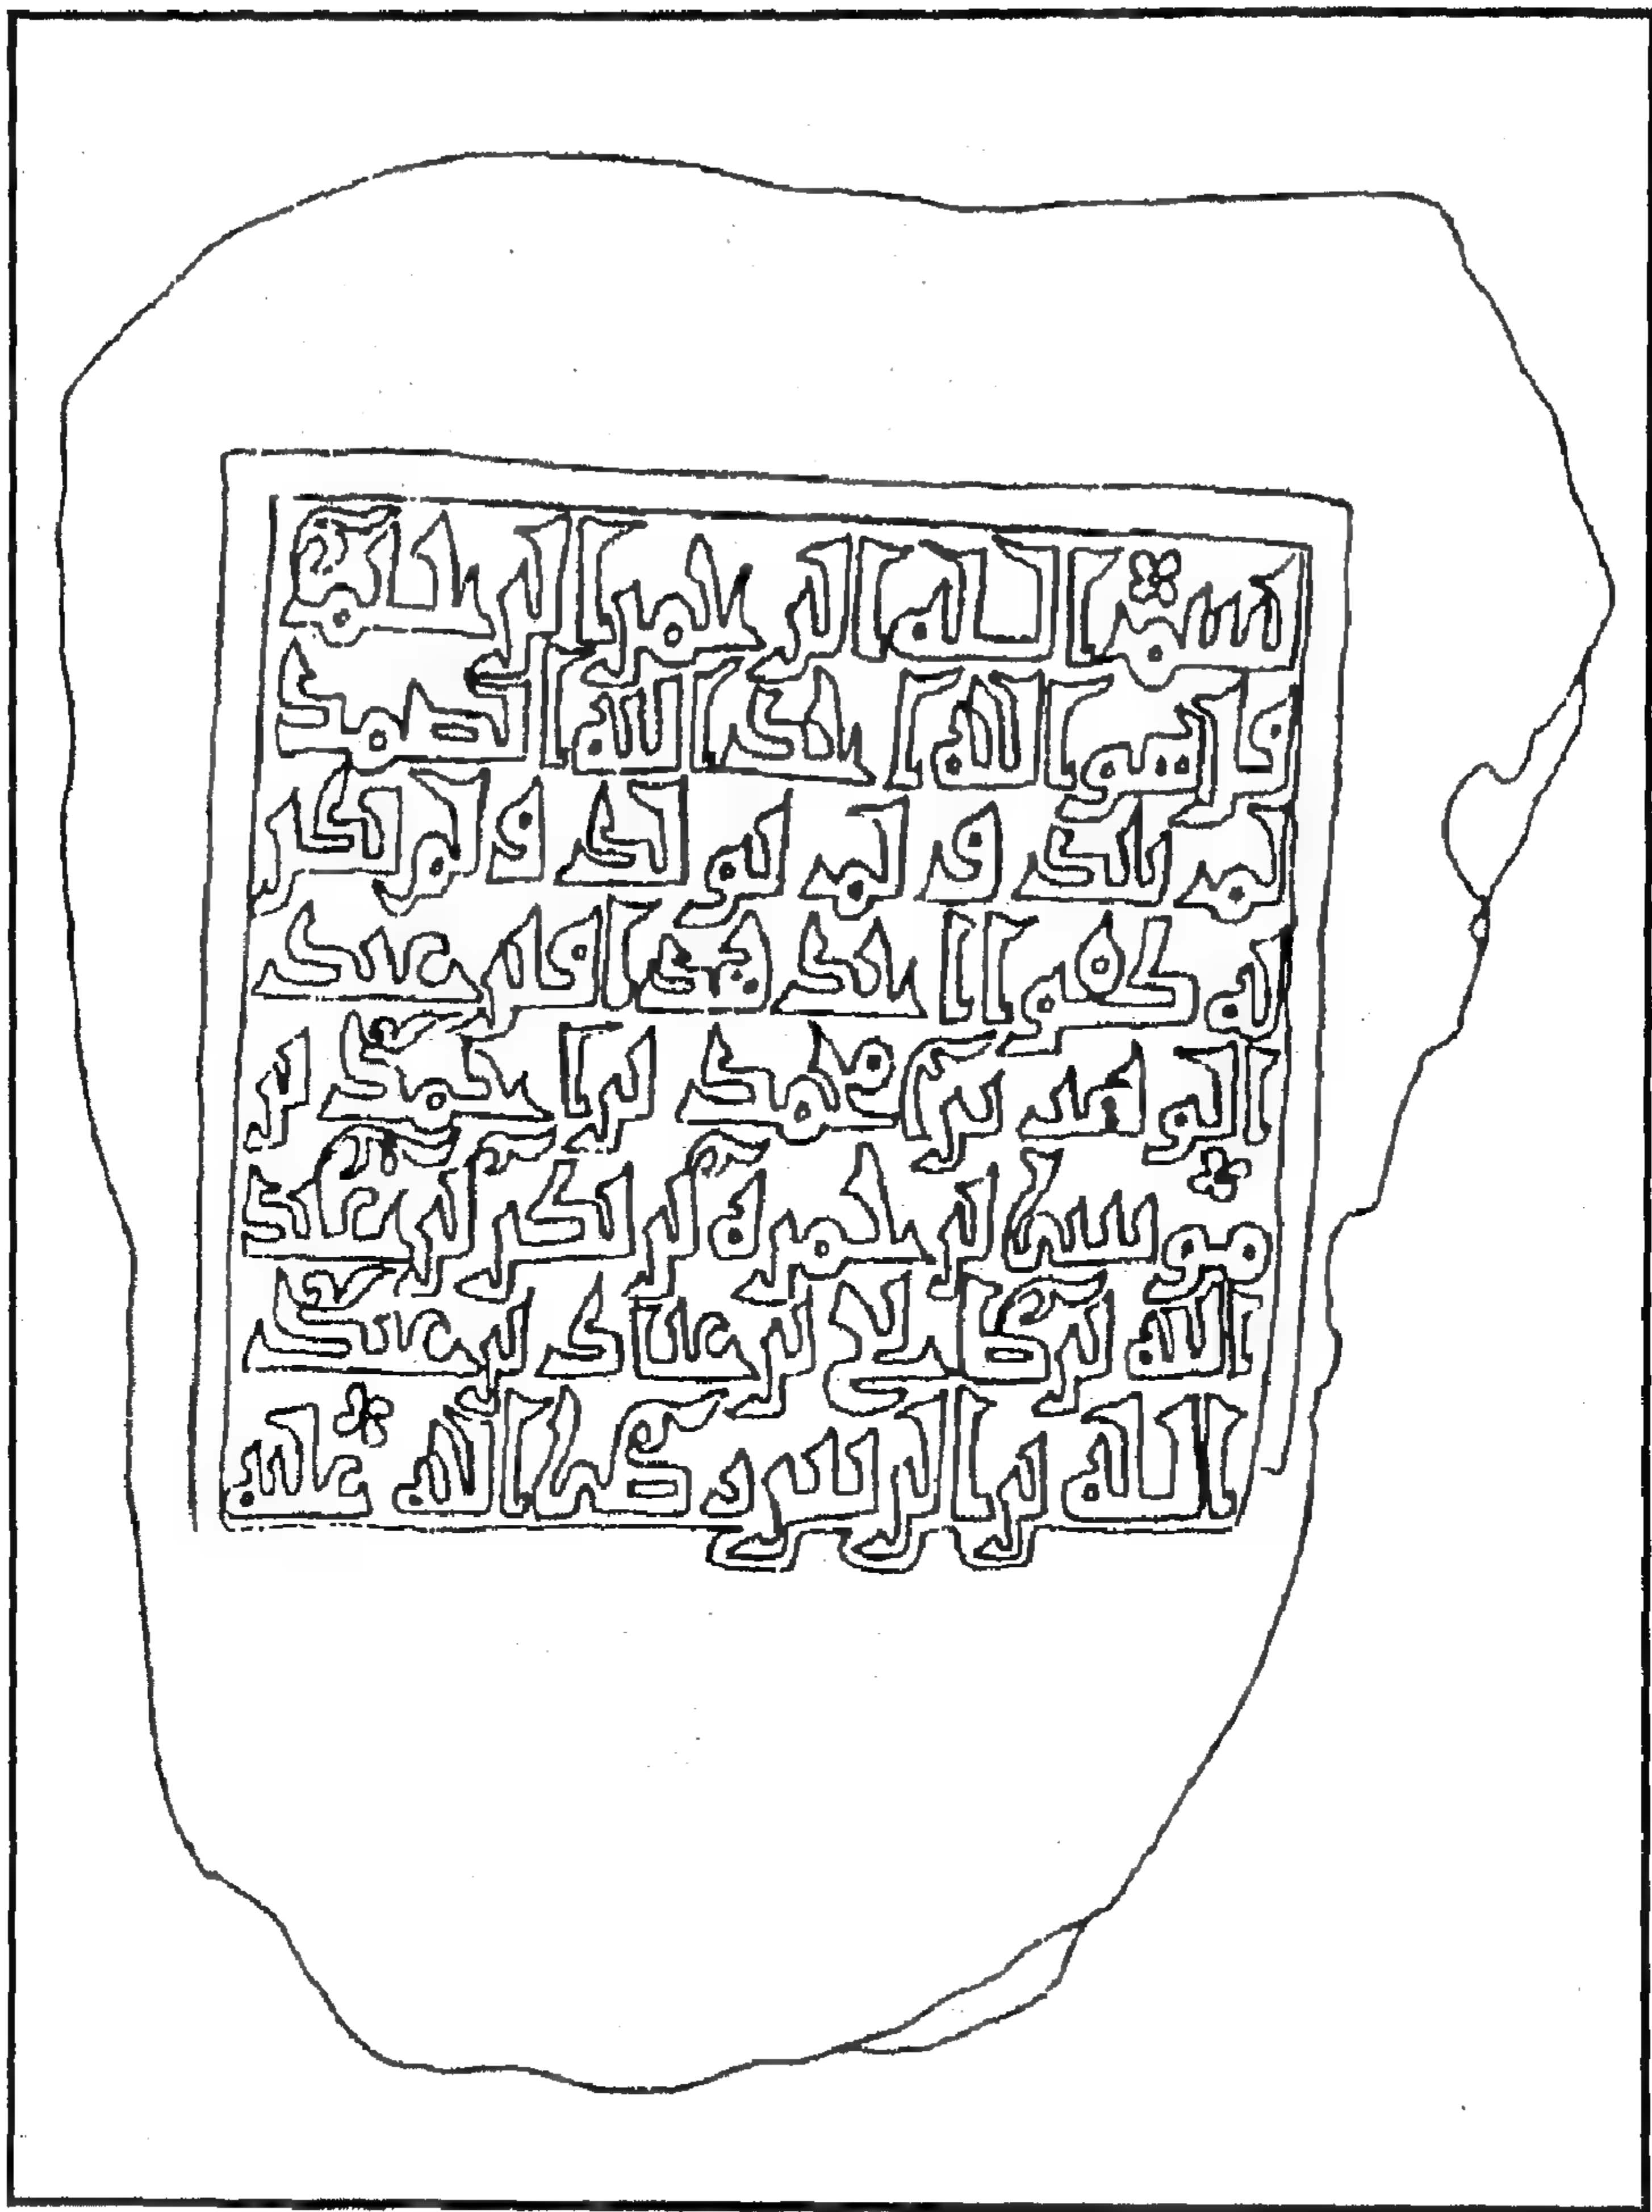 بسم الله الرحمن الرحيم
قل هو الله احد الله الصمد
لم يلد ولم يولد ولم يكن
له كفوا احد هذا قبر عبد
الواحد بن محمد بن احمد بن
موسى بن حمزة بن بن عبد
الله بن بن بن عبد
الله صلى الله عليه